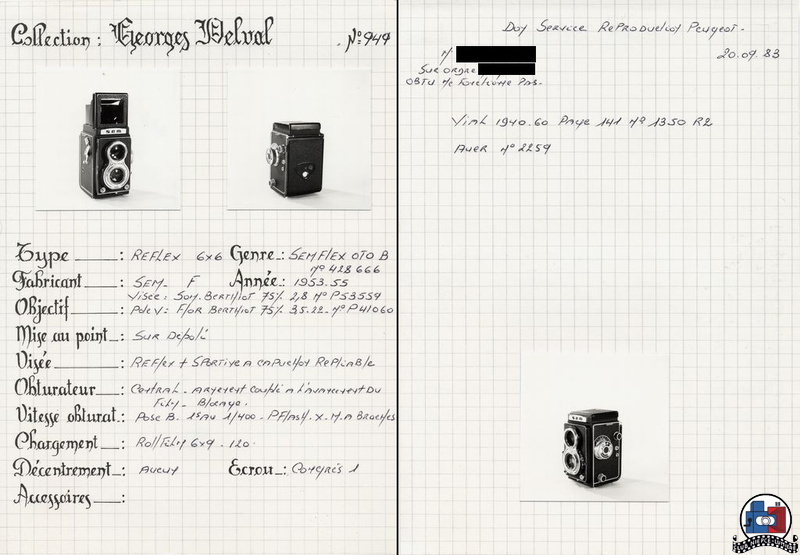 Collection : Georges Delval
N° 949
SEM
Type : REFLEX 6x6 Genre : SEMFLEX OTO B
N° 428666
Fabricant : SEM. F Année : 1953.55
Visée : Som. Berthiot 75% 2,8 N° P53559
Objectif : Pde V : Flor Berthiot 75% 3.5-22. N° P41060
Mise au point : Sur Dépoli
Visée : REFlex + SPORTive A CAPUCHON REPLIABLE
Obturateur : Central - Armement Couplé A l'avancement Du
Film - Blocage.
Vitesse obturat. : Pose B. 1s Au 1/400 - P Flash. X. M. A Broches
Chargement : Roll Film 6x9 - 120.
Décentrement : Aucun Ecrou : Congrès 1
Accessoires :
Don Service Reproduction Peugeot.
20.09.83
M.
Sur ordre
OBTU Ne Fonctionne Pas.
Vial 1940.60 Page 141 N° 1350 R2
Auer N° 2259
SEM